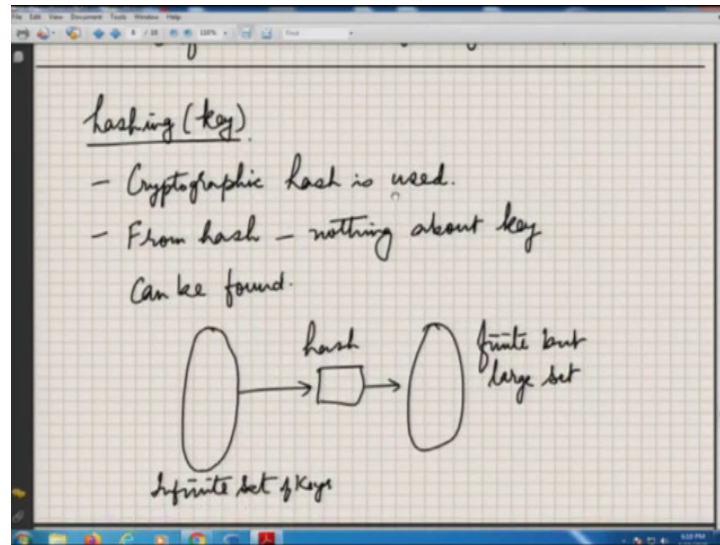 File Edit View Document Tools Window Help
8 / 15 110% Find
hashing (key)
- Cryptographic hash is used.
- From hash - nothing about key
can be found.
hash
finite but
large set
Infinite set of keys